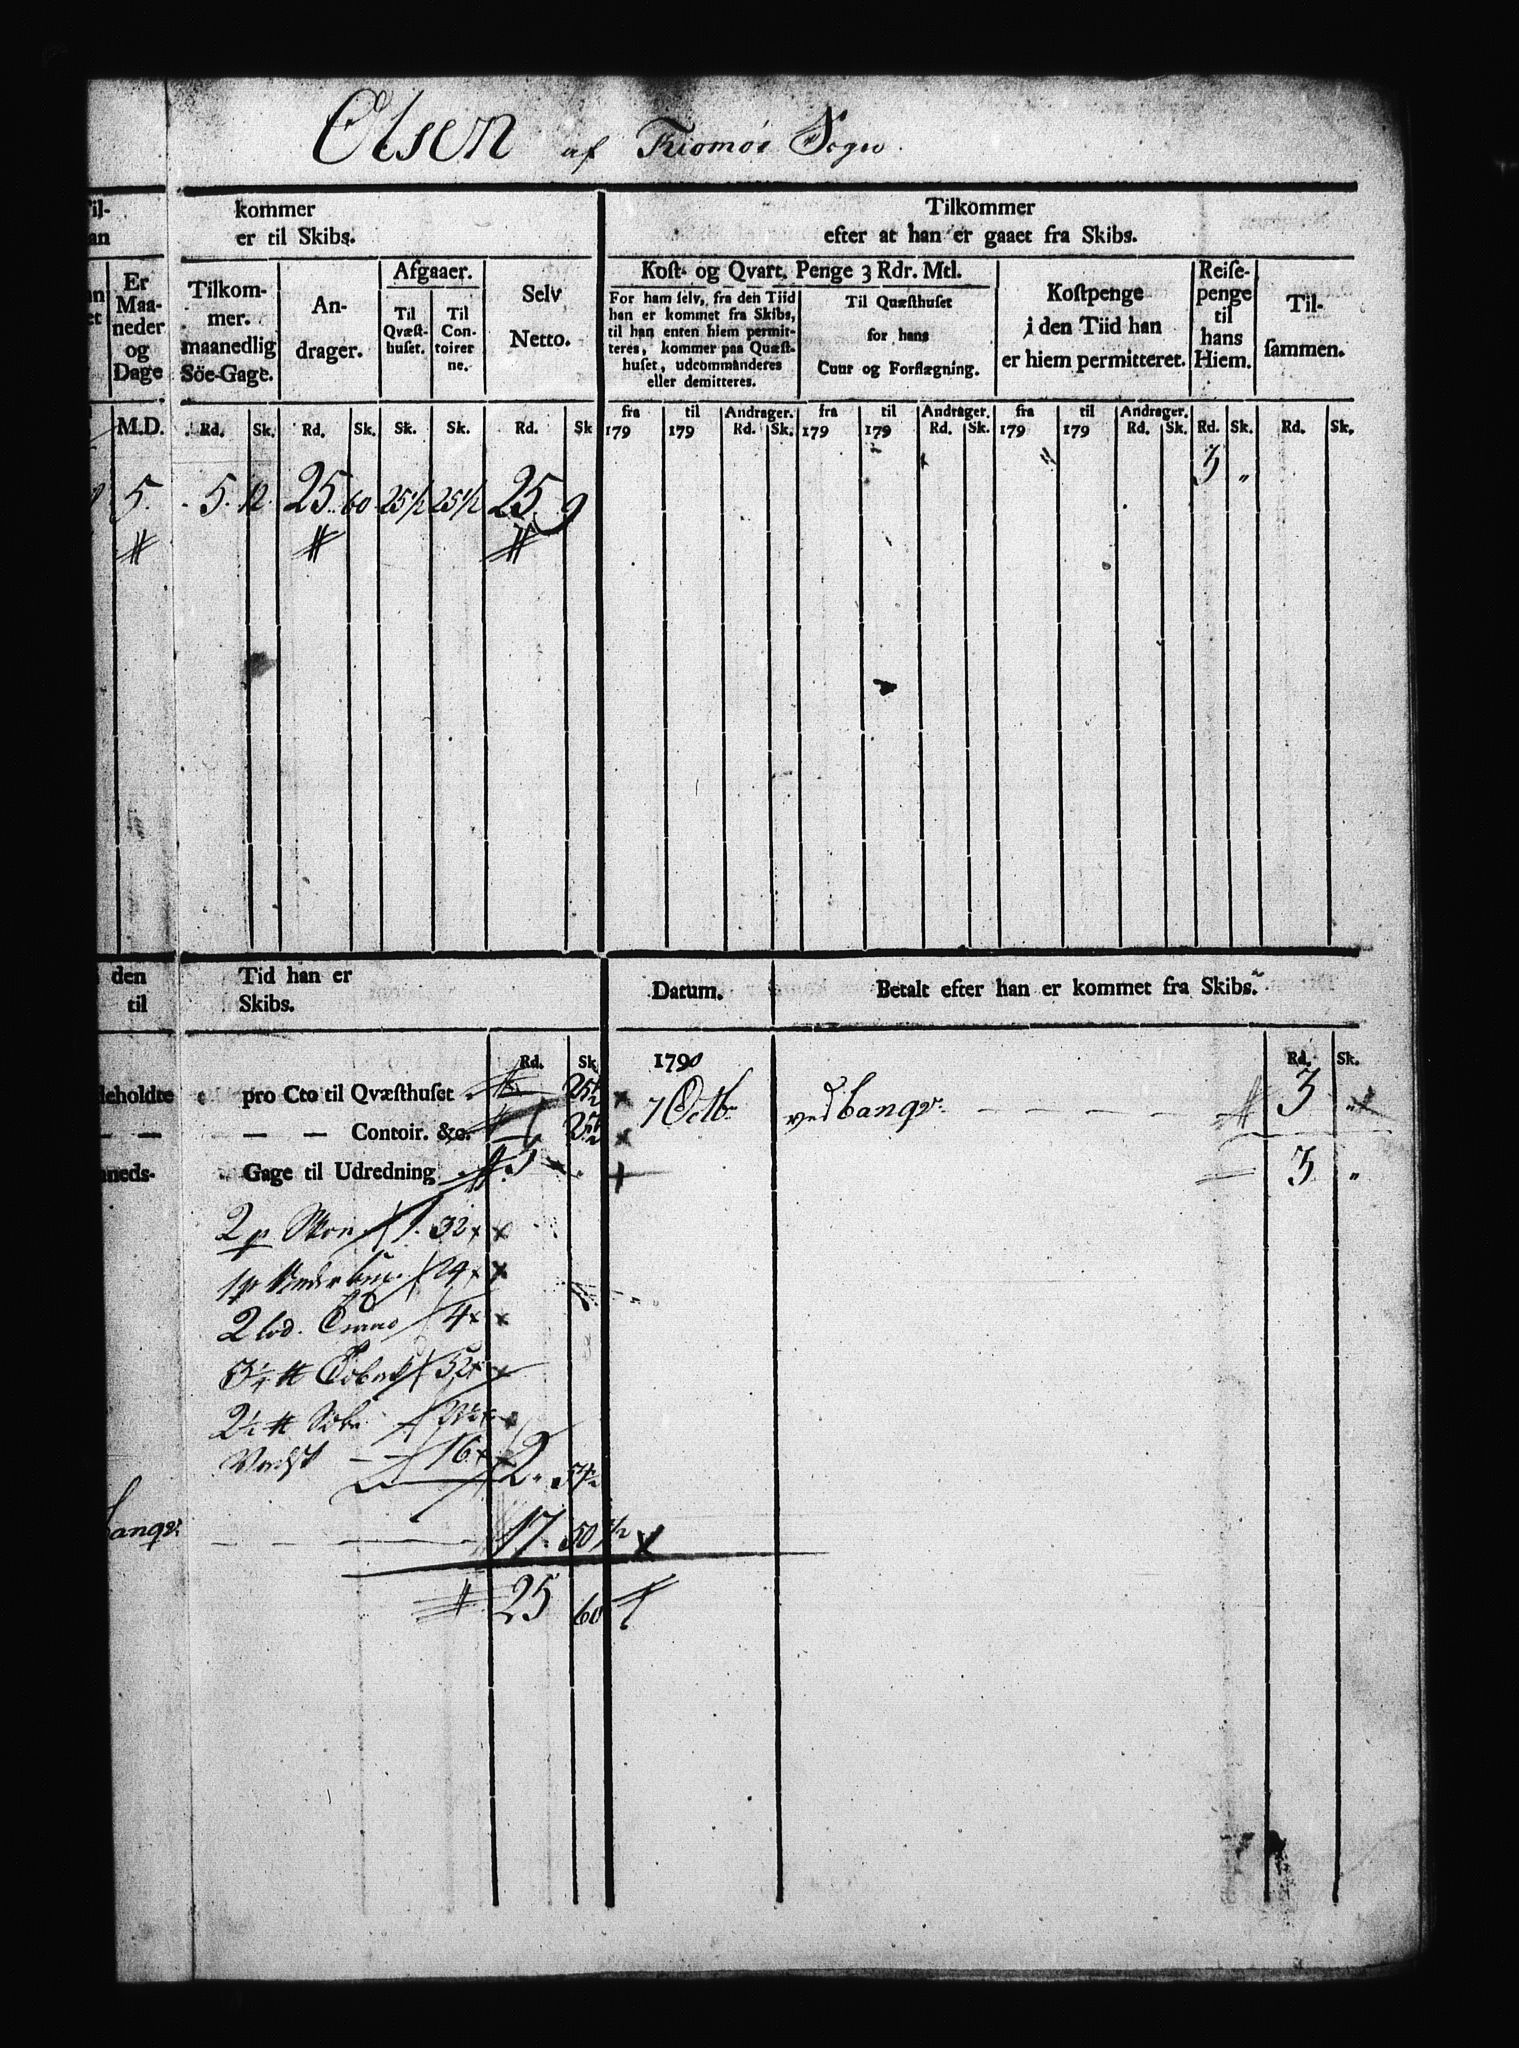 Olsen af Tromøe Sogn.
Til- kommer
an er til Skibs.
Tilkommer
efter at han er gaaet fra Skibs.
Er Maa-neder og Dage
Tilkom-mer. maanedlig Söe-Gage.
An-drager.
Afgaaer.
Til Qvæst-huset.
Til Con-toirer ne.
Selv Netto.
Kost- og Qvart. Penge 3 Rdr. Mtl.
For ham selv, fra den Tiid
han er kommet fra Skibs,
til han enten hiem permit-
teres, kommer paa Quæst-
huset, udcommanderes
eller demitteres.
Til Quæsthuset
for hans
Cuur og Forflægning.
Kostpenge
i den Tiid han
er hiem permitteret.
Reise-penge til hans Hiem.
Til-sammen.
M.D. Rd. Sk. Rd. Sk. Sk. Sk. Rd. Sk
fra til Andrager. fra til Andrager. fra til Andrager.
179 179 Rd. Sk. 179 179 Rd. Sk. 179 179 Rd. Sk. Rd. Sk. Rd. Sk.
5. 5. 12. 25. 60 25 1/2 25 1/2 25. 9 3 "
den Tid han er
til Skibs.
Datum.
Betalt efter han er kommet fra Skibs.
Rd. Sk. 1790 Rd. Sk.
deholdte pro Cto til Qvæsthuset 25 1/2
7 Octbr. ved banqv. 3 "
— — — — — Contoir. &c. 25 1/2
aneds- Gage til Udredning 5
3 "
2 p Skoe 1. 32
1 p 24
2 lod. 4
3 1/4 # Tobak 52
2 1/4 #
16 2. 54 1/2
banqv. 17. 50 1/2
25 60